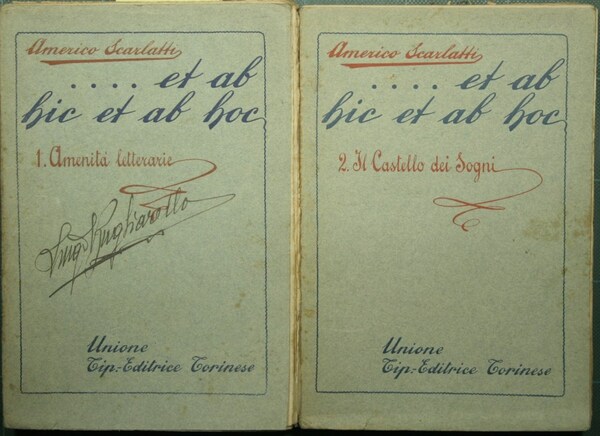 Americo Scarlatti
..... et ab
hic et ab hoc
1. Amenità letterarie
Unione
Tip.-Editrice Torinese
Americo Scarlatti
..... et ab
hic et ab hoc
2. Il Castello dei Sogni
Unione
Tip.-Editrice Torinese